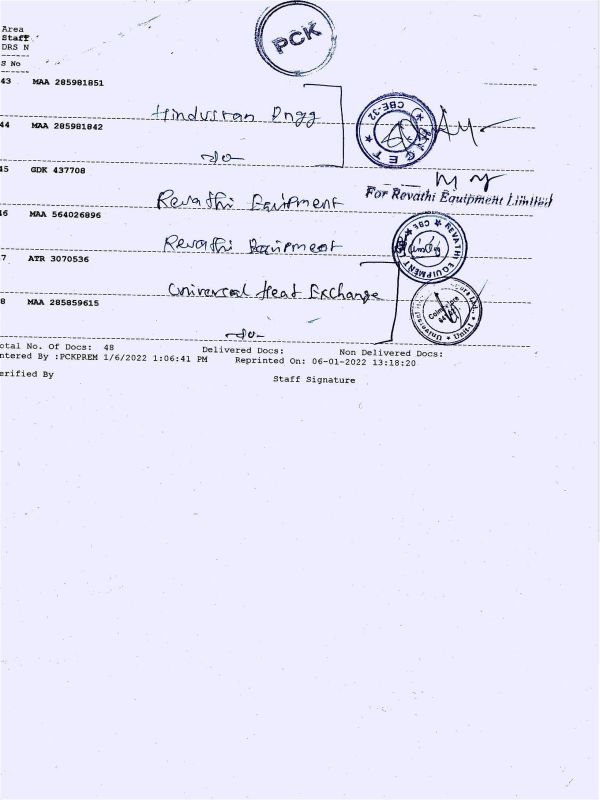 PCK
Area
Staff
DRS N
S No
43 MAA 285981851
Hindustan Engg
CBE-32
44 MAA 285981842
-do-
45 GDK 437708
Revathi Equipment
For Revathi Equipment Limited
46 MAA 564026896
Revathi Equipment
REVATHI EQUIPMENT ★ CBE ★
7 ATR 3070536
Universal Heat Exchange
8 MAA 285859615
Coimbatore
-do-
otal No. Of Docs: 48 Delivered Docs: Non Delivered Docs:
ntered By :PCKPREM 1/6/2022 1:06:41 PM Reprinted On: 06-01-2022 13:18:20
erified By Staff Signature